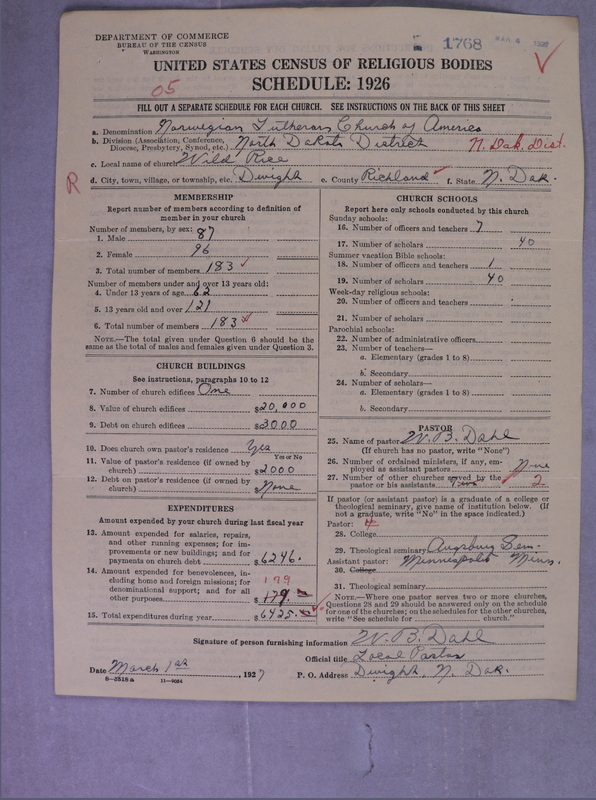 DEPARTMENT OF COMMERCE
BUREAU OF THE CENSUS
WASHINGTON
1768
UNITED STATES CENSUS OF RELIGIOUS BODIES
05
SCHEDULE: 1926
FILL OUT A SEPARATE SCHEDULE FOR EACH CHURCH. SEE INSTRUCTIONS ON THE BACK OF THIS SHEET
a. Denomination Norwegian Lutheran Church of America
b. Division (Association, Conference, Diocese, Presbytery, Synod, etc.) North Dakota District N. Dak. Dist.
c. Local name of church Wild Rice
R
d. City, town, village, or township, etc. Dwight e. County Richland f. State N. Dak.
MEMBERSHIP
Report number of members according to definition of member in your church
Number of members, by sex:
1. Male 87
2. Female 96
3. Total number of members 183
Number of members under and over 13 years old:
4. Under 13 years of age 62
5. 13 years old and over 121
6. Total number of members 183
NOTE.—The total given under Question 6 should be the same as the total of males and females given under Question 3.
CHURCH BUILDINGS
See instructions, paragraphs 10 to 12
7. Number of church edifices One
8. Value of church edifices $20,000
9. Debt on church edifices $3000
10. Does church own pastor's residence Yes
Yes or No
11. Value of pastor's residence (if owned by church) $2000
12. Debt on pastor's residence (if owned by church) $None
EXPENDITURES
Amount expended by your church during last fiscal year
13. Amount expended for salaries, repairs, and other running expenses; for improvements or new buildings; and for payments on church debt $6246.
14. Amount expended for benevolences, including home and foreign missions; for denominational support; and for all other purposes 179 $179.
15. Total expenditures during year $6425.
CHURCH SCHOOLS
Report here only schools conducted by this church
Sunday schools:
16. Number of officers and teachers 7
17. Number of scholars 40
Summer vacation Bible schools:
18. Number of officers and teachers 1
19. Number of scholars 40
Week-day religious schools:
20. Number of officers and teachers
21. Number of scholars
Parochial schools:
22. Number of administrative officers
23. Number of teachers—
a. Elementary (grades 1 to 8)
b. Secondary
24. Number of scholars—
a. Elementary (grades 1 to 8)
b. Secondary
PASTOR
25. Name of pastor W. B. Dahl
(If church has no pastor, write "None")
26. Number of ordained ministers, if any, employed as assistant pastors None
27. Number of other churches served by the pastor or his assistants 2
If pastor (or assistant pastor) is a graduate of a college or theological seminary, give name of institution below. (If not a graduate, write "No" in the space indicated.)
Pastor: 4
28. College
29. Theological seminary Augsburg Sem.
Assistant pastor: Minneapolis Minn.
30. College
31. Theological seminary
NOTE.—Where one pastor serves two or more churches, Questions 28 and 29 should be answered only on the schedule for one of the churches; on the schedules for the other churches, write "See schedule for church."
Signature of person furnishing information W. B. Dahl
Official title Local Pastor
Date March 1st, 1927 P. O. Address Dwight, N. Dak.